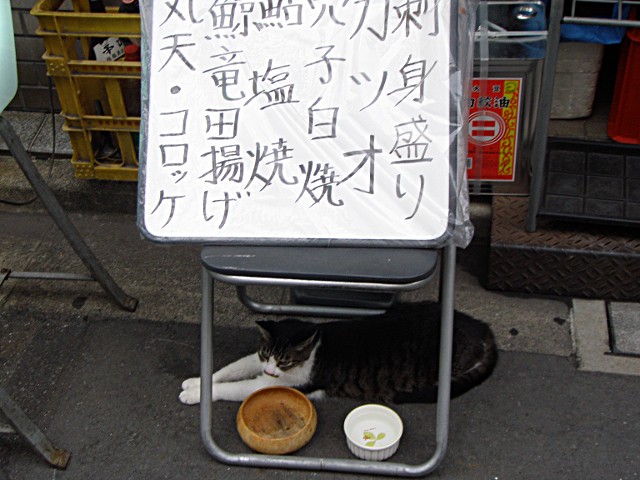 刺身盛り
カツオ
穴子白焼
鮎塩焼
鯨竜田揚げ
丸天・コロッケ